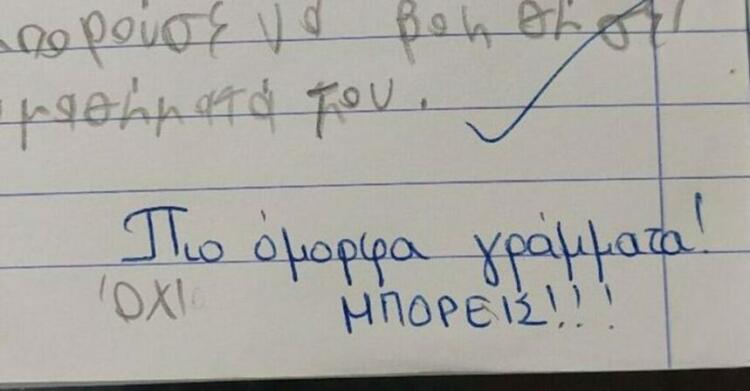 πορούσε να βοηθήσει
μαθήματά μου.
Πιο όμορφα γράμματα!
'ΟΧΙ ΜΠΟΡΕΙΣ!!!